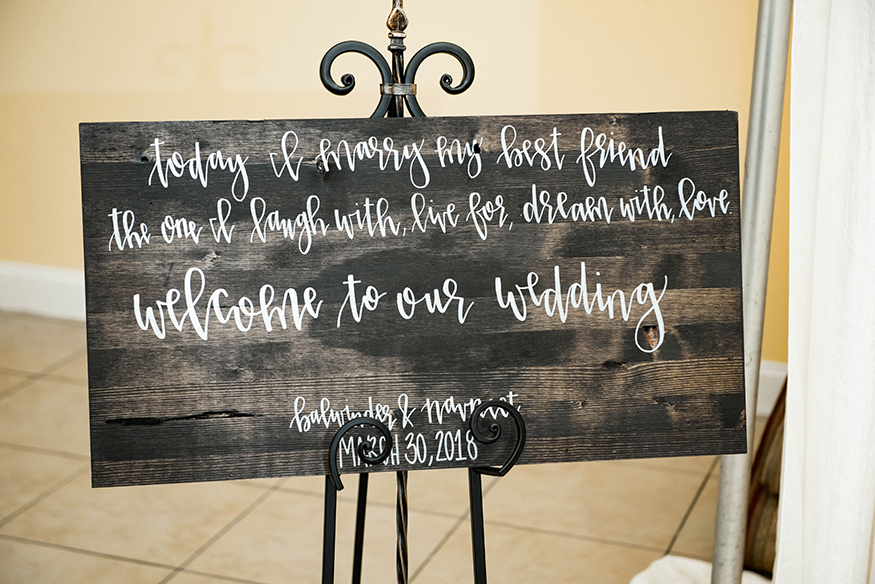 today I marry my best friend
the one I laugh with, live for, dream with, love.
welcome to our wedding
balwinder & navneet
MARCH 30, 2018